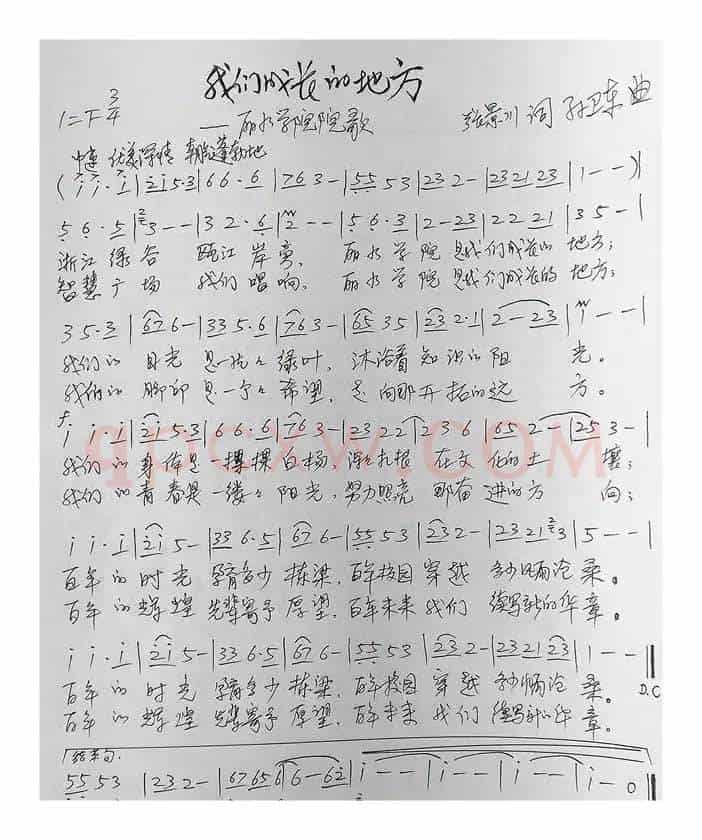 我们成长的地方
1=F 3/4
——丽水学院院歌
张景川 词 孙卫东 曲
中速 优美深情 朝气蓬勃地
( i i· i | 2i 5·3 | 6 6· 6 | 76 3 - | 55 5 3 | 23 2 - | 2321 23 | 1 - - )|
5 6· 5 | 3 - - | 3 2· 6 | 2 - - | 5 6· 3 | 2 - 23 | 2 2 21 | 3 5 - |
浙江绿谷 瓯江岸旁, 丽水学院是我们成长的地方;
智慧广场 我们唱响, 丽水学院是我们成长的地方;
3 5·3 | 67 6 - | 33 5·6 | 76 3 - | 65 3 5 | 23 2·1 | 2 - 23 | 1 - - |
我们的目光是一片片绿叶, 沐浴着知识的阳光。
我们的脚印是一个个希望, 走向那开拓的远方。
f
i i· i | 2i 5·3 | 6 6· 6 | 76 3 - | 23 22 | 2 3 6 | 65 2 - | 25 3 - |
我们的身体是一棵棵白杨, 深深扎根在文化的土壤;
我们的青春是一缕缕阳光, 努力照亮那奋进的方向;
i i· i | 2i 5 - | 33 6·5 | 67 6 - | 55 5 3 | 23 2 - | 23 21 3 | 5 - - |
百年的时光 孕育多少栋梁, 百年校园穿越 多少沧桑。
百年的辉煌 先辈寄予厚望, 百年未来我们 续写新的华章。
i i· i | 2i 5 - | 33 6·5 | 67 6 - | 55 5 3 | 23 2 - | 2321 23 | 1 - - ‖
百年的时光 孕育多少栋梁, 百年校园穿越 多少沧桑。 D.C
百年的辉煌 先辈寄予厚望, 百年未来我们 续写新的华章。
结束句.
55 5 3 | 23 2 - | 67 65 6 | 6 - 62 | i - - | i - - | i - - | i - 0 ‖
qpcxw.com